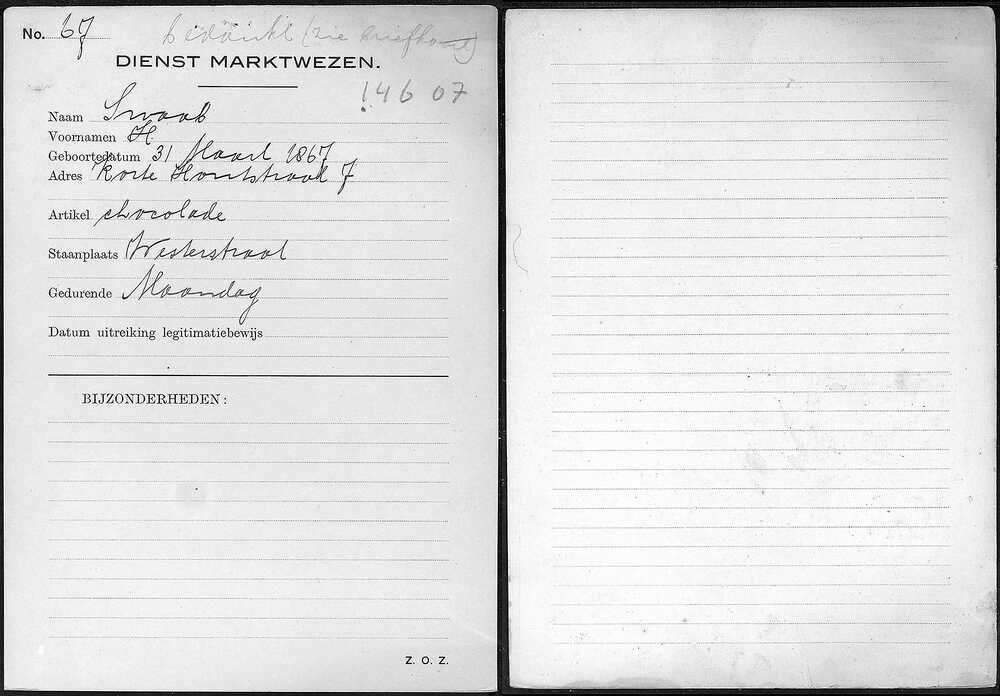 No. 67 bedankt (zie briefkaart)
DIENST MARKTWEZEN.
! 46 07
Naam Swaab
Voornamen H.
Geboortedatum 31 Maart 1867
Adres Korte Houtstraat 7
Artikel chocolade
Staanplaats Westerstraat
Gedurende Maandag
Datum uitreiking legitimatiebewijs
BIJZONDERHEDEN:
Z. O. Z.